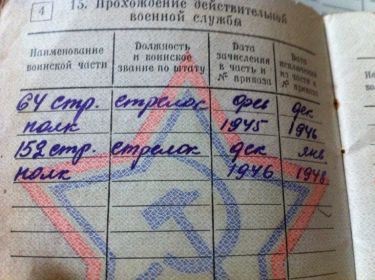 4
15. Прохождение действительной
военной службы
Наименование воинской части
Должность и воинское звание по штату
Дата зачисления в часть и № приказа
Дата исключения из части и № приказа
64 стр. стрелок фев дек
полк 1945 1946
152 стр. стрелок дек янв
полк 1946 1948